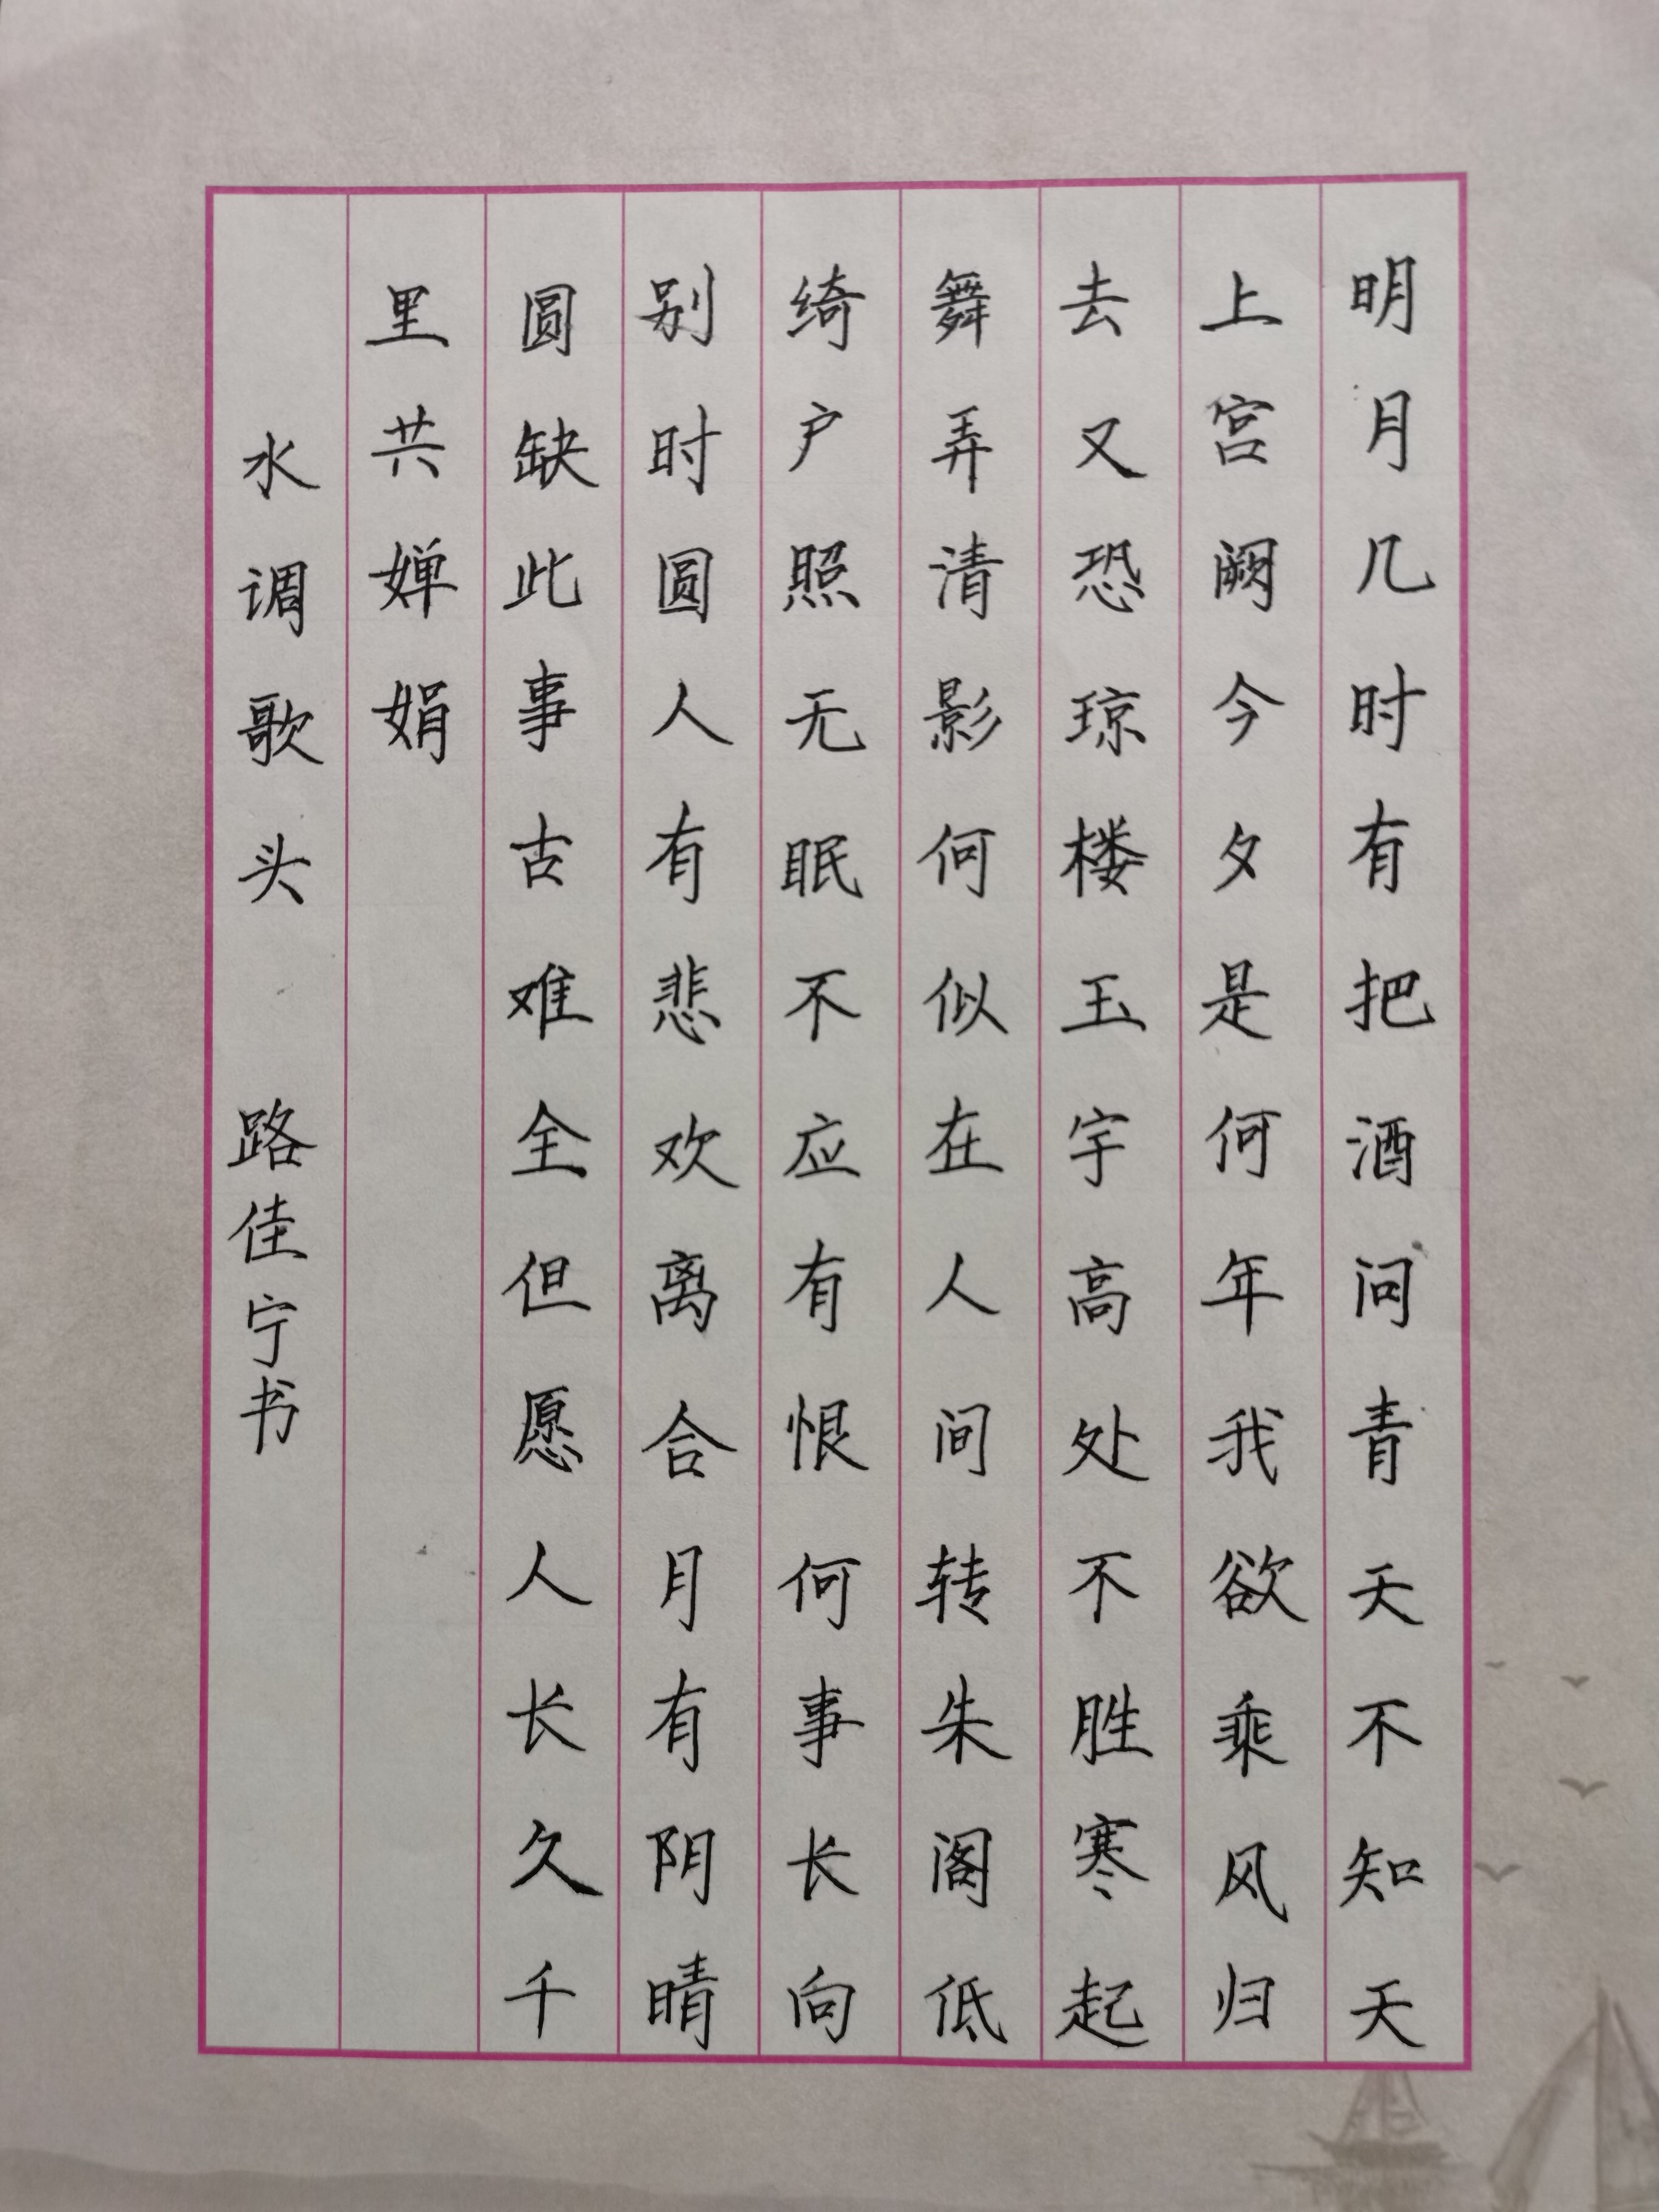 明月几时有把酒问青天不知天
上宫阙今夕是何年我欲乘风归
去又恐琼楼玉宇高处不胜寒起
舞弄清影何似在人间转朱阁低
绮户照无眠不应有恨何事长向
别时圆人有悲欢离合月有阴晴
圆缺此事古难全但愿人长久千
里共婵娟
水调歌头 路佳宁书